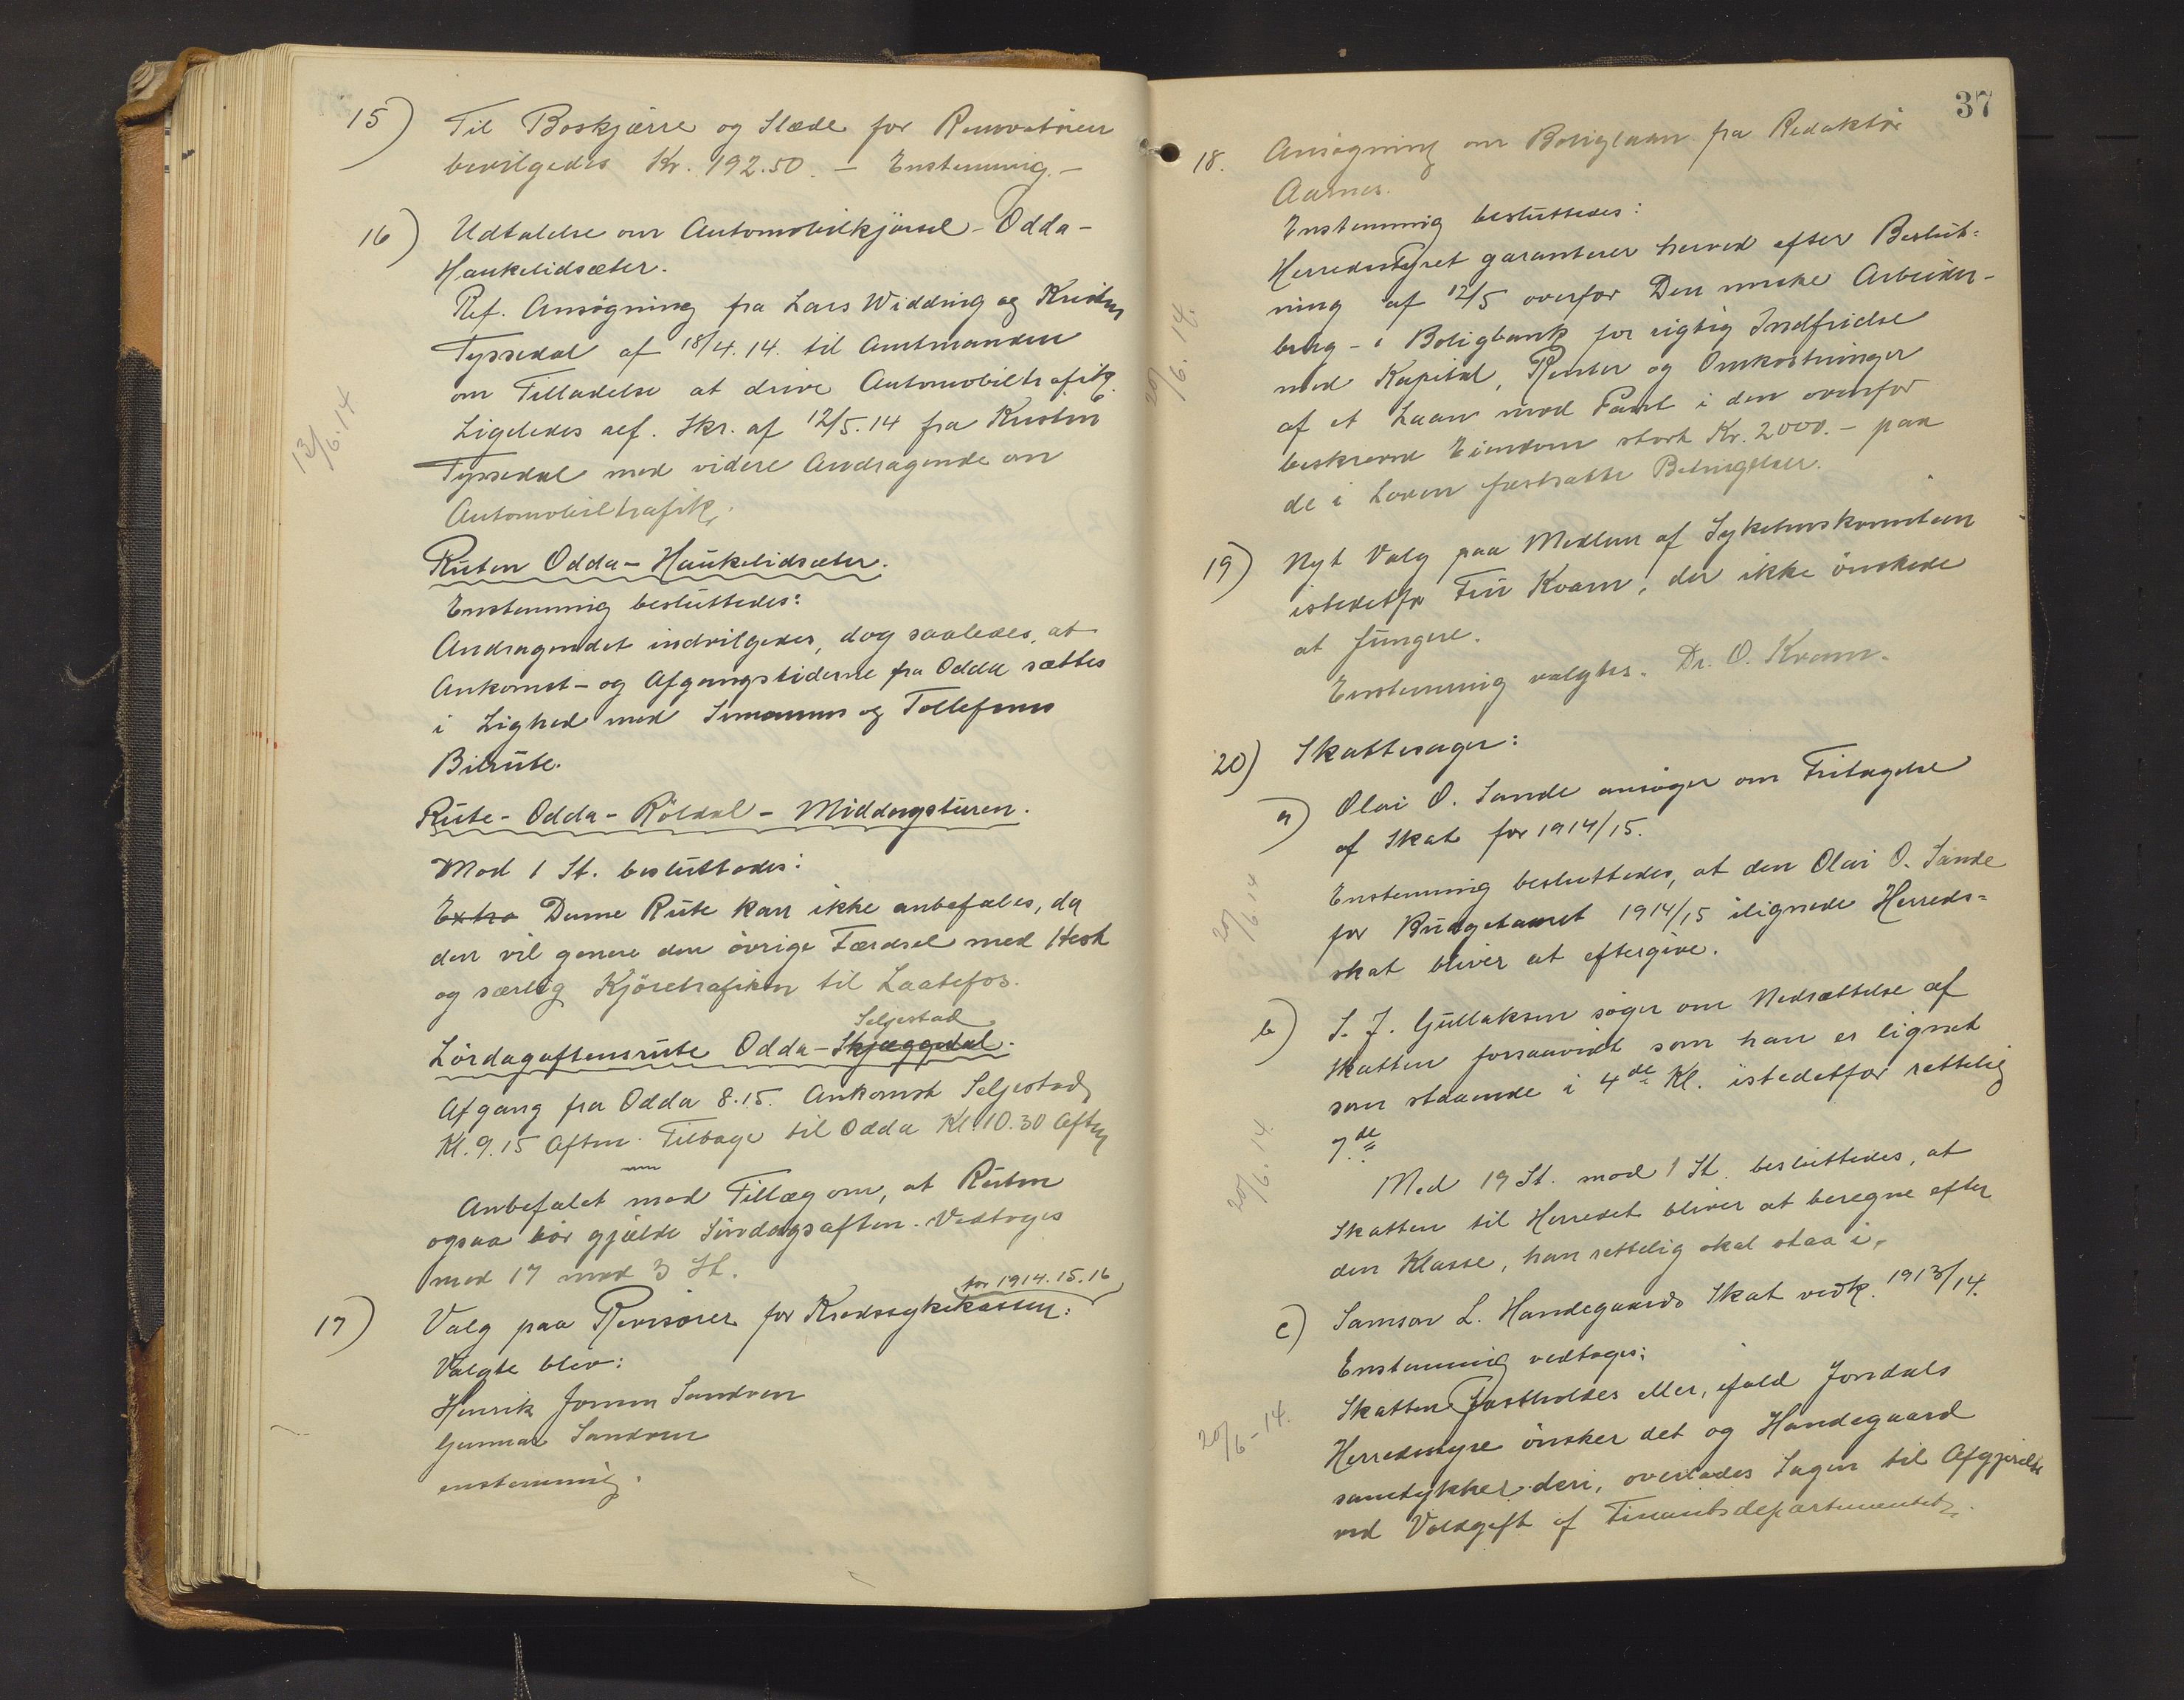 15) Til Boskjærre og Slæde for Renovatören
bevilgedes Kr. 192.50. – Enstemmig. –
16) Udtalelse om Automobilkjörsel – Odda –
Haukelidsæter.
Ref. Ansögning fra Lars Widding og Kristen
Tyssedal af 18/4.14. til Amtmanden
om Tilladelse at drive Automobiltrafik.
Ligeledes ref. Skr. af 12/5.14 fra Kristen
Tyssedal med videre Andragende om
Automobiltrafik.
13/6.14
Ruten Odda – Haukelidsæter.
Enstemmig besluttedes:
Andragendet indvilgedes, dog saaledes, at
Ankomst- og Afgangstiderne fra Odda sættes
i Lighed med Simonsens og Tollefsens
Bilrute.
Rute – Odda – Röldal – Middagsturen.
Mod 1 St. besluttedes:
Extra Denne Rute kan ikke anbefales, da
den vil genere den övrige Færdsel med Hest
og særlig Kjöretrafiken til Laatefos.
Seljestad
Lördagaftensrute Odda – Skjæggedal.
Afgang fra Odda 8.15. Ankomst Seljestad
Kl. 9.15 Aften. Tilbage til Odda Kl. 10.30 Aften
Anbefalet med Tillæg om, at Ruten
ogsaa bör gjælde Söndagsaften. Vedtoges
med 17 mod 3 St.
for 1914.15.16
17) Valg paa Revisorer for Kredssykekassen:
Valgte blev:
Henrik Jonsen Sandven
Gunnar Sandven
enstemmig.
37
18. Ansögning om Boliglaan fra Redaktör
Aarnes.
Enstemmig besluttedes:
Herredsstyret garanterer herved efter Beslut-
ning af 12/5 overfor Den norske Arbeider-
brug- & Boligbank for rigtig Indfrielse
med Kapital, Renter og Omkostninger
af et Laan mod Pant i den ovenfor
beskrevne Eiendom stort Kr. 2000.– paa
de i Loven fastsatte Betingelser.
20/6.14.
19) Nyt Valg paa Medlem af Sykehuskomiteen
istedetfor Kvam, der ikke önskede
at fungere.
Enstemmig valgtes. Dr. O. Kvam.
20) Skattesager:
a) Olai O. Sande ansöger om Fritagelse
af Skat for 1914/15.
Enstemmig besluttedes, at den Olai O. Sande
for Budgetaaret 1914/15 ilignede Herreds-
skat bliver at eftergive.
20/6.14
b) S. J. Gullaksen söger om Nedsættelse af
Skatten forsaavidt som han er lignet
som staaende i 4de Kl. istedetfor rettelig
7.de
Med 19 St. mod 1 St. besluttedes, at
Skatten til Herredet bliver at beregne efter
den Klasse, han rettelig skal staa i.
20/6.14.
c) Samson L. Handegaards Skat vedk. 1913/14.
Enstemmig vedtoges:
Skatten fastholdes eller, ifald Jondals
Herredsstyre önsker det og Handegaard
samtykker deri, overlades Sagen til Afgjörelse
ved Voldgift af Finantsdepartementet.
20/6-14.